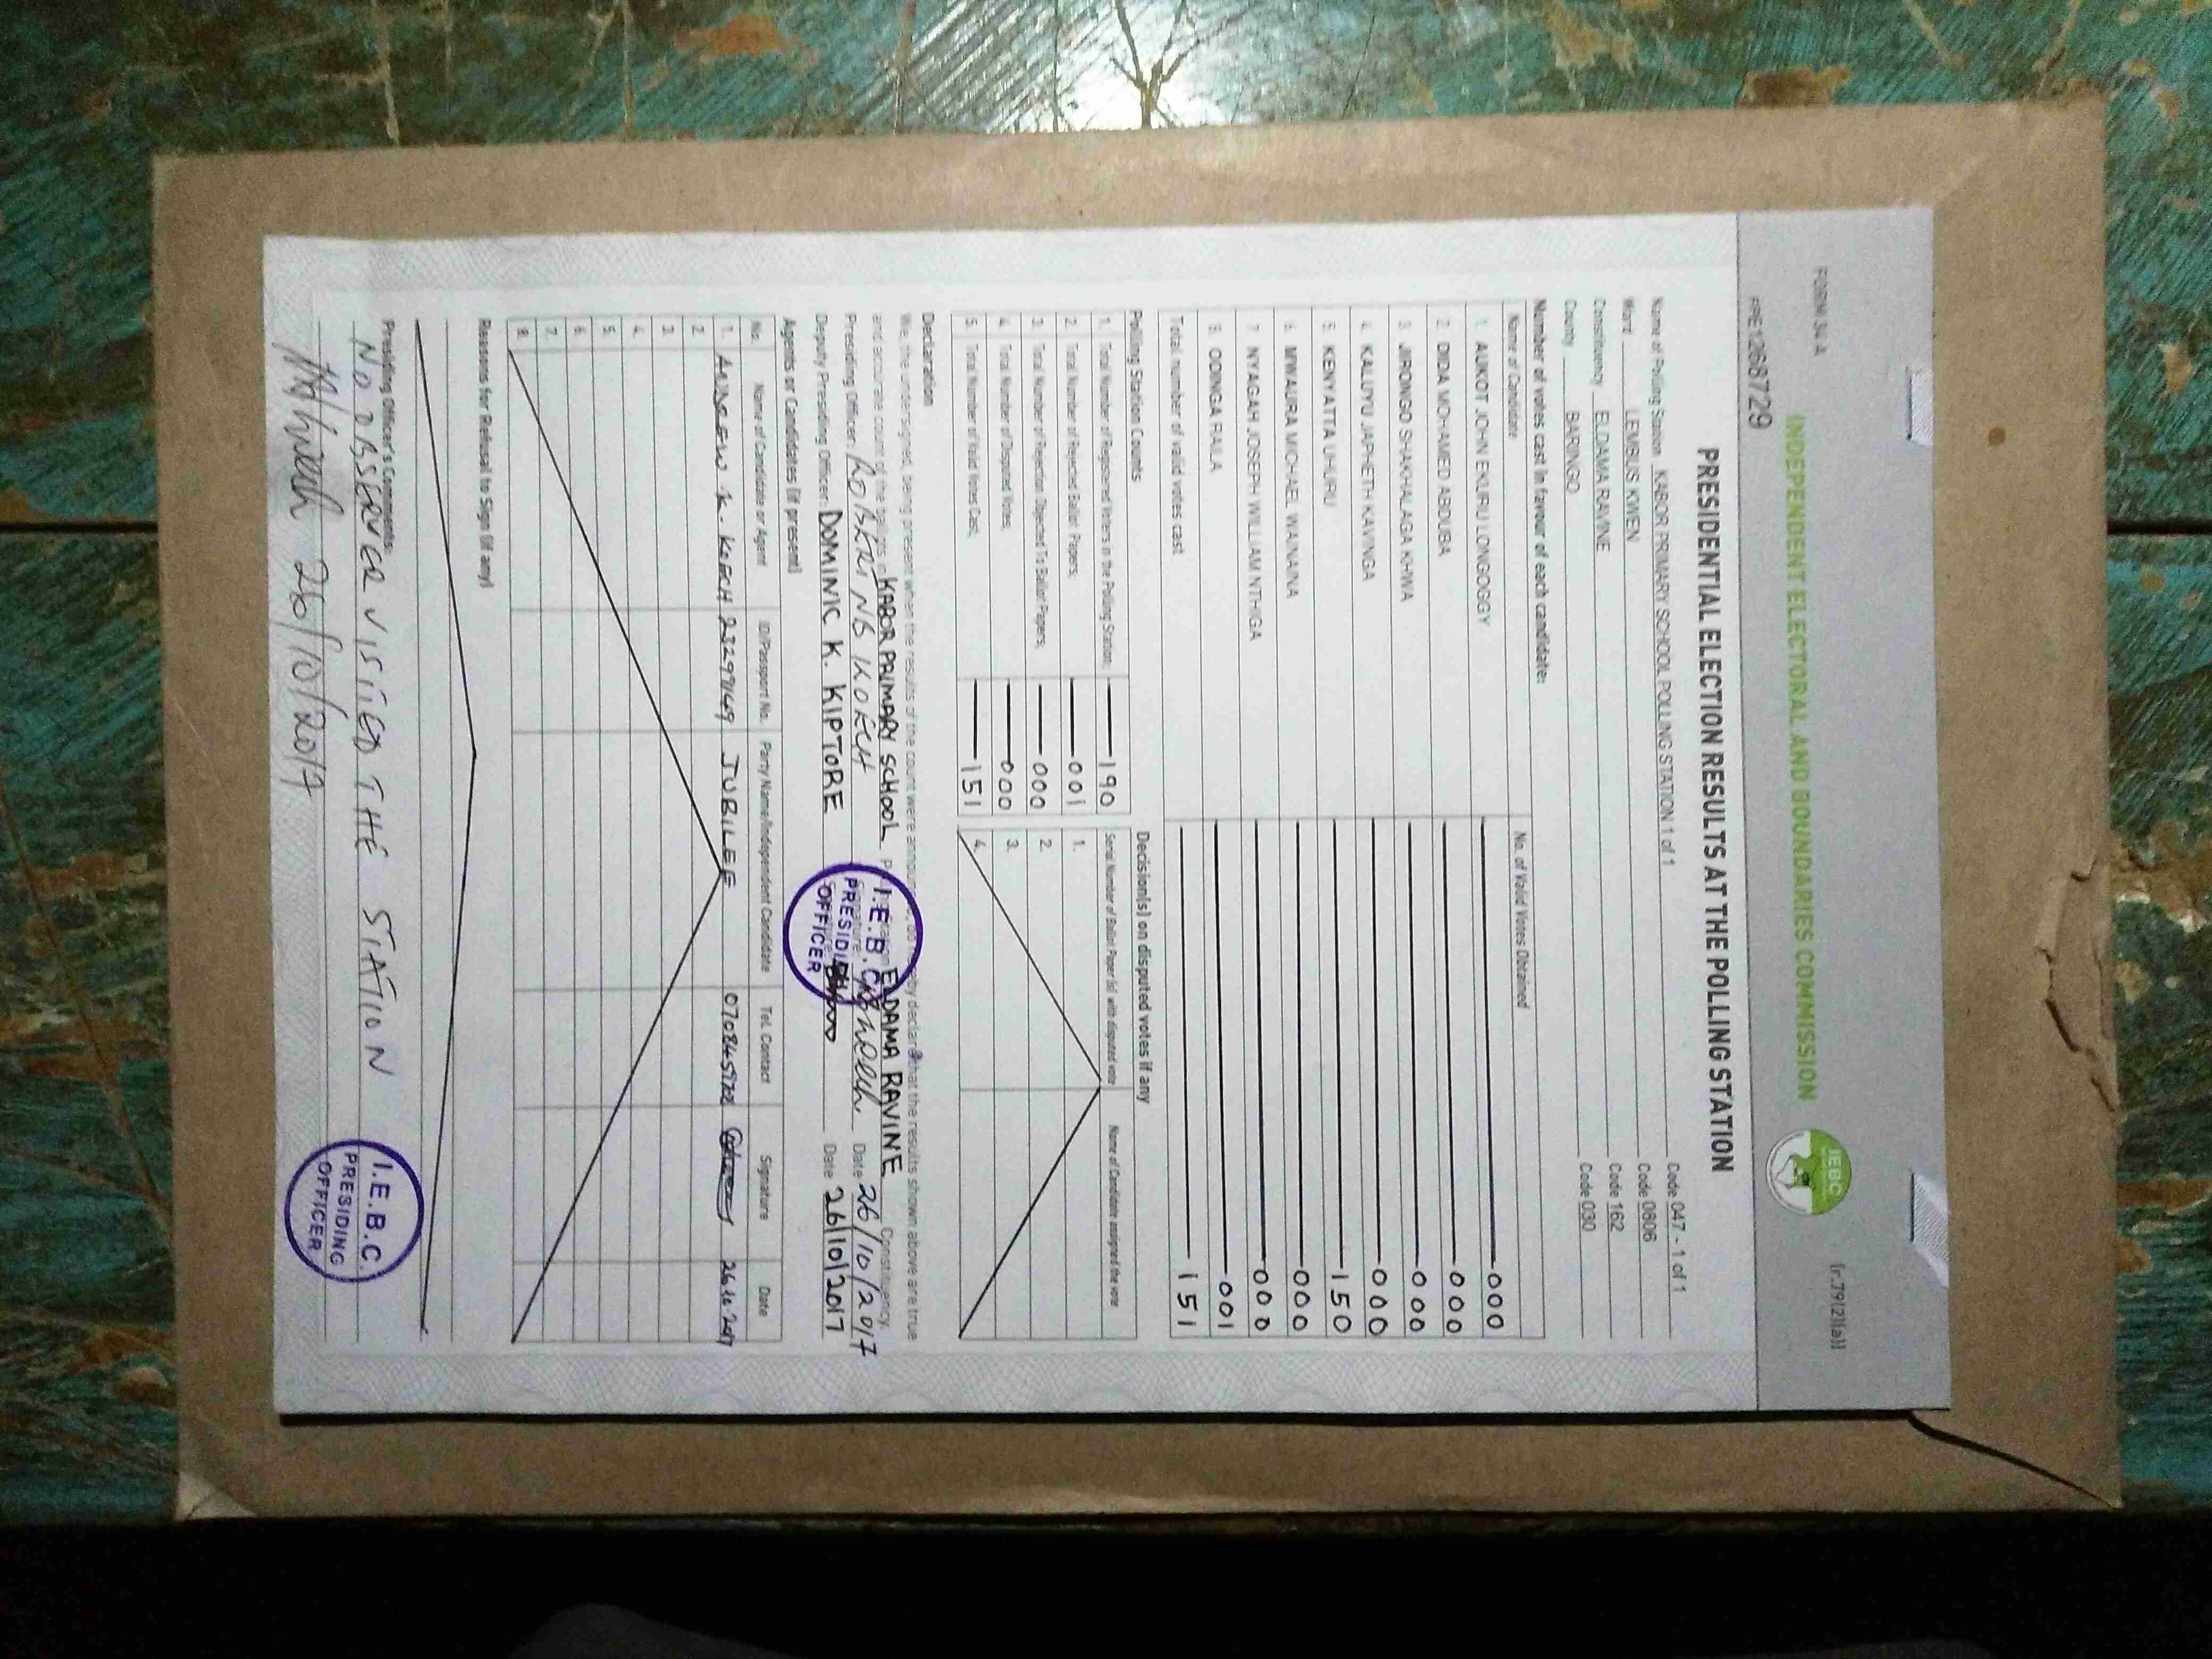 FORM 34 A
(r.79(2)(a))
INDEPENDENT ELECTORAL AND BOUNDARIES COMMISSION
IEBC
PRE1268729
PRESIDENTIAL ELECTION RESULTS AT THE POLLING STATION
Name of Polling Station KABOR PRIMARY SCHOOL POLLING STATION 1 of 1 Code 047 - 1 of 1
Ward LEMBUS KWEN Code 0806
Constituency ELDAMA RAVINE Code 162
County BARINGO Code 030
Number of votes cast in favour of each candidate:
Name of Candidate No. of Valid Votes Obtained
1. AUKOT JOHN EKURU LONGOGGY 000
2. DIDA MOHAMED ABDUBA 000
3. JIRONGO SHAKHALAGA KHWA 000
4. KALUYU JAPHETH KAVINGA 000
5. KENYATTA UHURU 150
6. MWAURA MICHAEL WAINAINA 000
7. NYAGAH JOSEPH WILLIAM NTHIGA 000
8. ODINGA RAILA 001
Total number of valid votes cast 151
Polling Station Counts
1. Total Number of Registered Voters in the Polling Station: 190
2. Total Number of Rejected Ballot Papers: 001
3. Total Number of Rejection Objected To Ballot Papers: 000
4. Total Number of Disputed Votes: 000
5. Total Number of Valid Votes Cast: 151
Decision(s) on disputed votes if any
Serial Number of Ballot Paper (s) with disputed vote Name of Candidate assigned the vote
1.
2.
3.
4.
Declaration
We, the undersigned, being present when the results of the count were announced, do hereby declare that the results shown above are true
and accurate count of the ballots in KABOR PRIMARY SCHOOL ELDAMA RAVINE Constituency.
Presiding Officer: KOECH Date 26/10/2017
Deputy Presiding Officer: DOMINIC K. KIPTORE Date 26/10/2017
I.E.B.C.
PRESIDING
OFFICER
Agents or Candidates (if present)
No. Name of Candidate or Agent ID/Passport No. Party Name/Independent Candidate Tel. Contact Signature Date
1. ANDREW K. KOECH JUBILEE 26.10.2017
2.
3.
4.
5.
6.
7.
8.
Reasons for Refusal to Sign (if any)
Presiding Officer's Comments:
NO OBSERVER VISITED THE STATION
26/10/2017
I.E.B.C.
PRESIDING
OFFICER